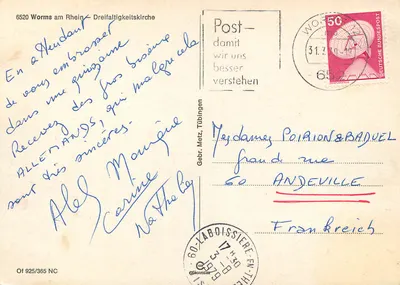 6520 Worms am Rhein – Dreifaltigkeitskirche
En attendant
de vous embrasser
dans une quinzaine
Recevez des gros bisous
ALLEMANDS, qui malgré cela
sont très sincères.
Monique
Carine
Nathalie
Gebr. Metz, Tübingen
Of 925/365 NC
Post-
damit
wir uns
besser
verstehen
WO
31.7
65
50
DEUTSCHE BUNDESPOST
Mesdames POIRION & BADUEL
grande rue
60 ANDEVILLE
Frankreich
60-LABOISSIERE-EN-THE
17 H 30
3-8
1979